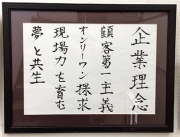 企業理念
顧客第一主義
オンリーワン探求
現場力を育む
夢と共生